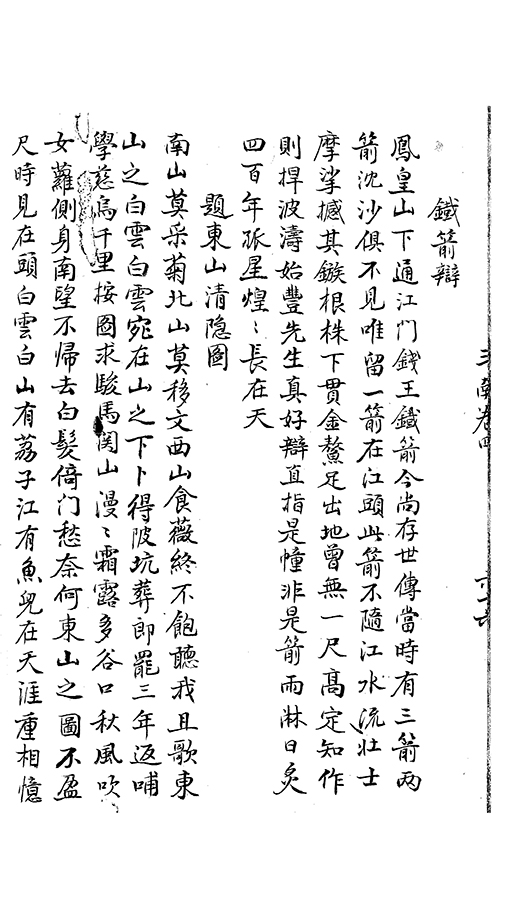 鐵箭辯
鳳皇山下通江門錢王鐵箭今尚存世傳當時有三箭兩
箭沈沙俱不見唯留一箭在江頭此箭不隨江水流壮士
摩挲撼其鏃根株下貫金鰲足出地曾無一尺髙定知作
則捍波濤始豐先生真好辯直指是幢非是箭雨淋日炙
四百年孤星煌〻長在天
題東山清隐圖
南山莫采菊北山莫移文西山食薇終不飽聽我且歌東
山之白雲白雲宛在山之下卜得陂坑葬郎罷三年返哺
學慈烏千里按圖求駿馬関山漫〻霜露多谷口秋風吹
女蘿側身南望不歸去白髮倚門愁奈何東山之圖不盈
尺時見在頭白雲白山有荔子江有魚兒在天涯重相憶